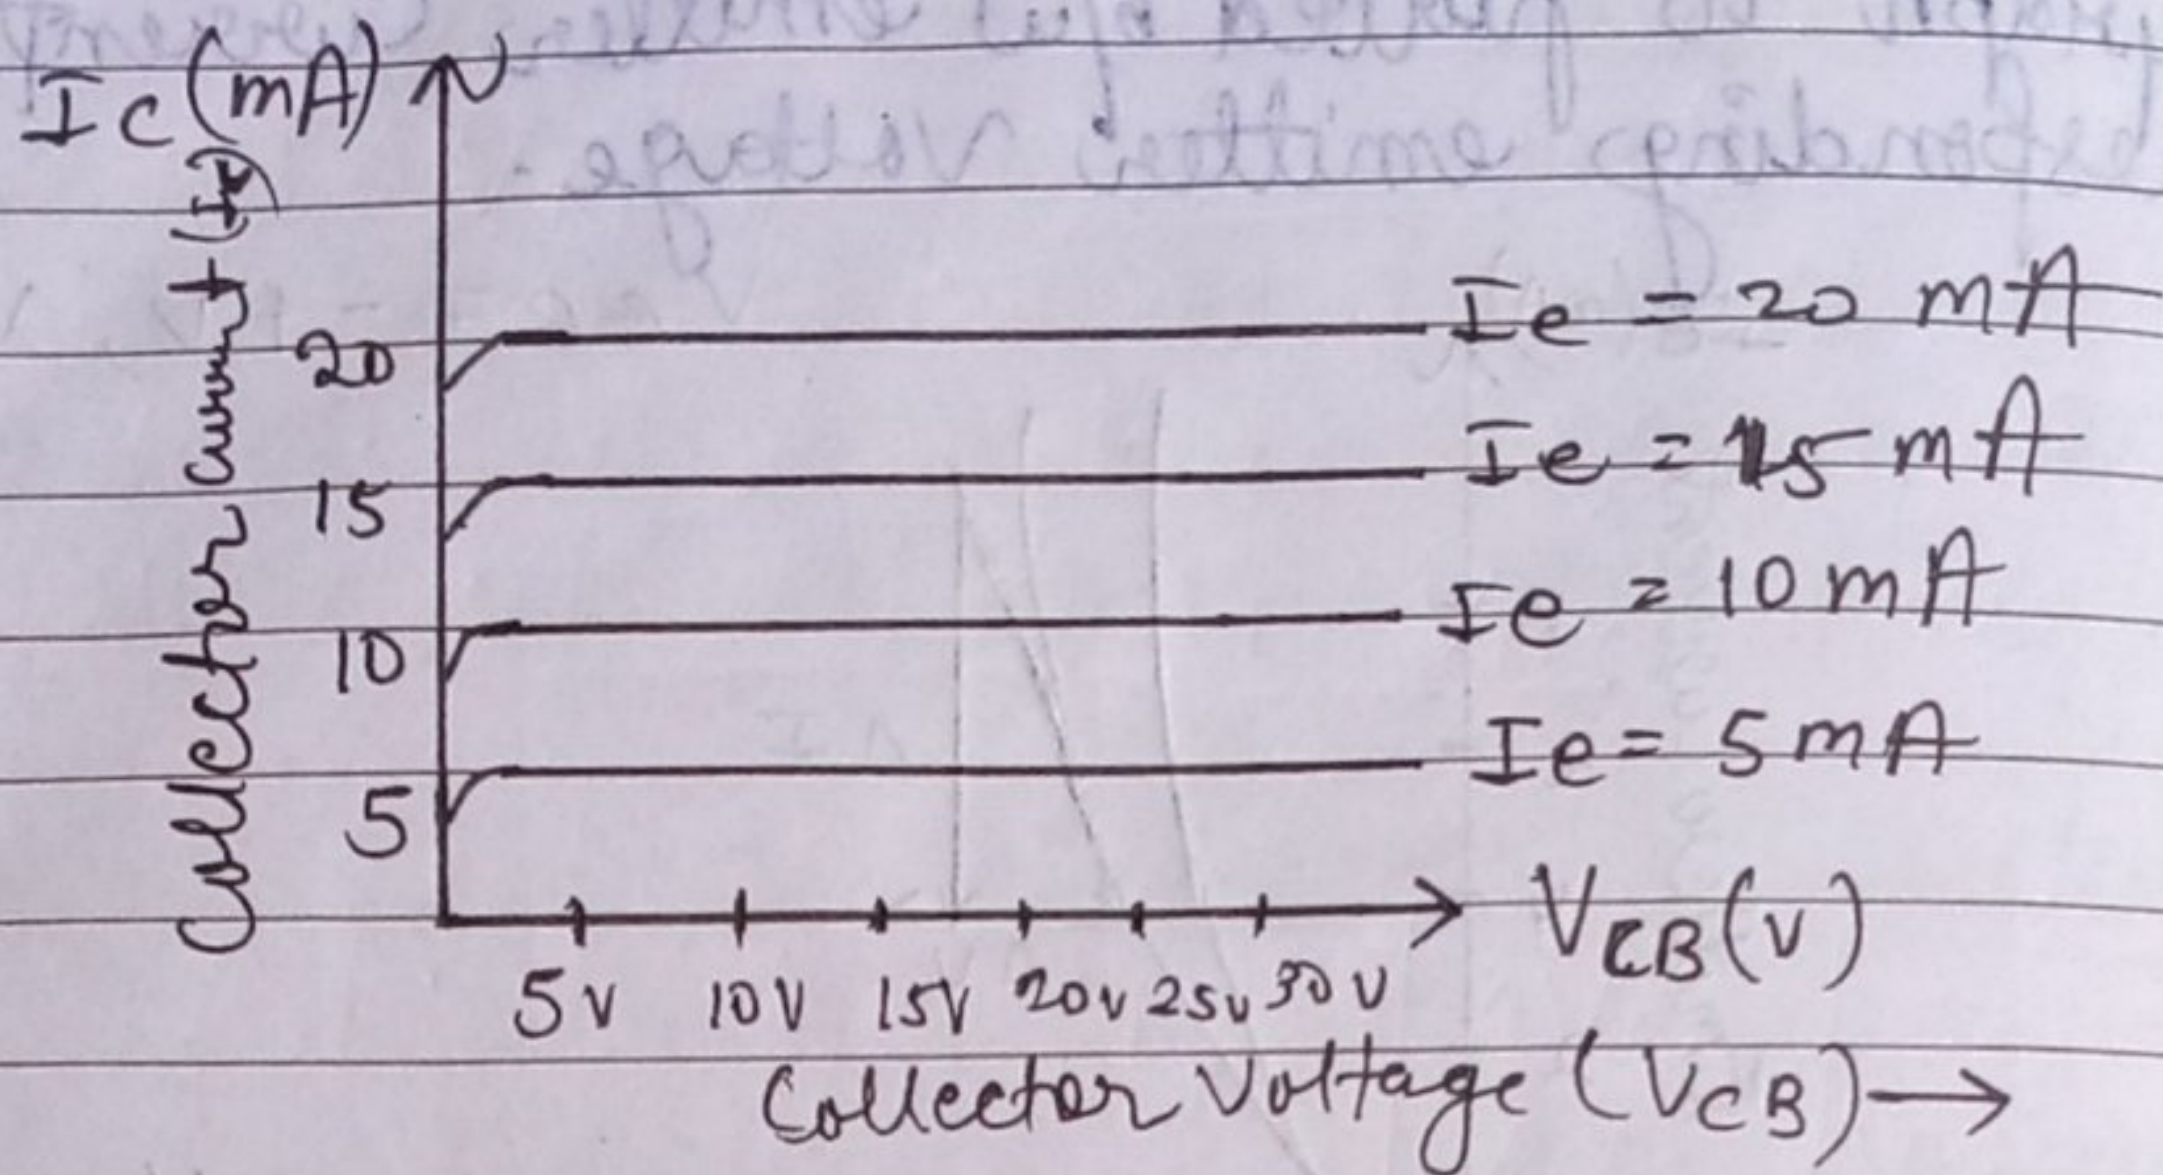 Ic (mA)
Collector current (Ic)
20
15
10
5
Ie = 20 mA
Ie = 15 mA
Ie = 10 mA
Ie = 5 mA
VCB (V)
5V 10V 15V 20V 25V 30V
Collector Voltage (VCB) →